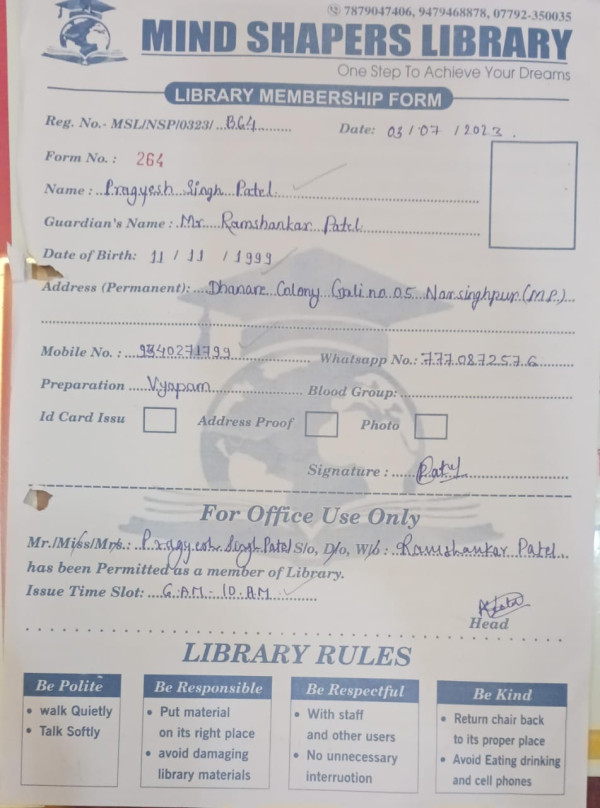 7879047406, 9479468878, 07792-350035
MIND SHAPERS LIBRARY
One Step To Achieve Your Dreams
LIBRARY MEMBERSHIP FORM
Reg. No.- MSL/NSP/0323/ B64 Date: 03/07/2023.
Form No. : 264
Name : Pragyesh Singh Patel
Guardian's Name : Mr. Ramshankar Patel
Date of Birth: 11 / 11 / 1999
Address (Permanent): Dhanare Colony Gali no. 05 Narsinghpur (M.P.)
Mobile No. : 9340271799 Whatsapp No.: 7770872576
Preparation Vyapam Blood Group:
Id Card Issu Address Proof Photo
Signature : Patel
For Office Use Only
Mr./Miss/Mrs.: Pragyesh Singh Patel S/o, D/o, W/o : Ramshankar Patel
has been Permitted as a member of Library.
Issue Time Slot: 6 AM - 10 AM
Head
LIBRARY RULES
Be Polite
• walk Quietly
• Talk Softly
Be Responsible
• Put material
on its right place
• avoid damaging
library materials
Be Respectful
• With staff
and other users
• No unnecessary
interruotion
Be Kind
• Return chair back
to its proper place
• Avoid Eating drinking
and cell phones